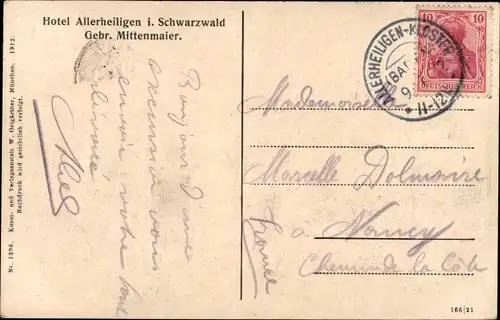 Hotel Allerheiligen i. Schwarzwald
Gebr. Mittenmaier.
Nr. 1296. Kunst- und Verlagsanstalt W. Oetgkener, München. 1912.
Nachdruck wird gerichtlich verfolgt.
Bonjour d'une
excursion vous
envoie votre
ALLERHEILIGEN-KLOSTER
(BADEN)
9
11-12
10 10
DEUTSCHES REICH
Mademoiselle
Marcelle Dolmaire
à Nancy
Chemin de la Côte
France
166/21